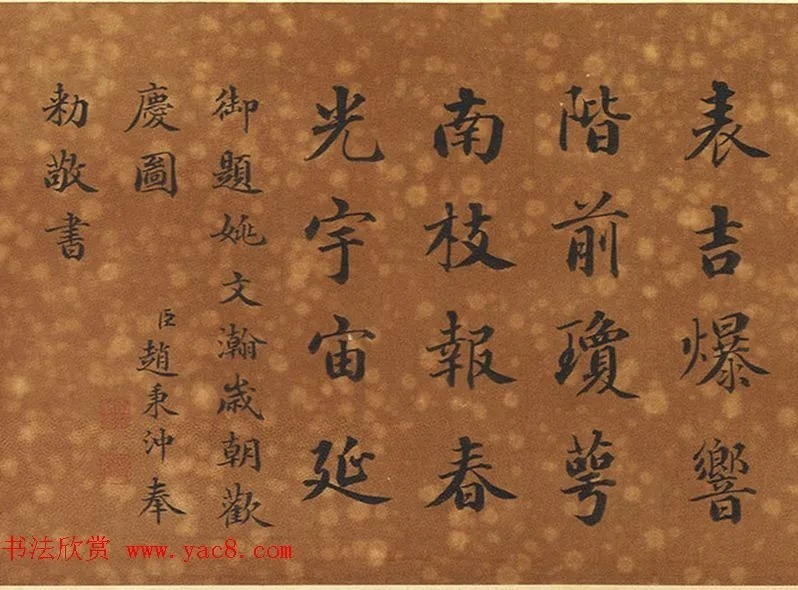 表吉爆響
階前瓊萼
南枝報春
光宇宙延
御題姚文瀚歲朝歡
慶圖
臣趙秉沖奉
勅敬書
书法欣赏 www.yac8.com